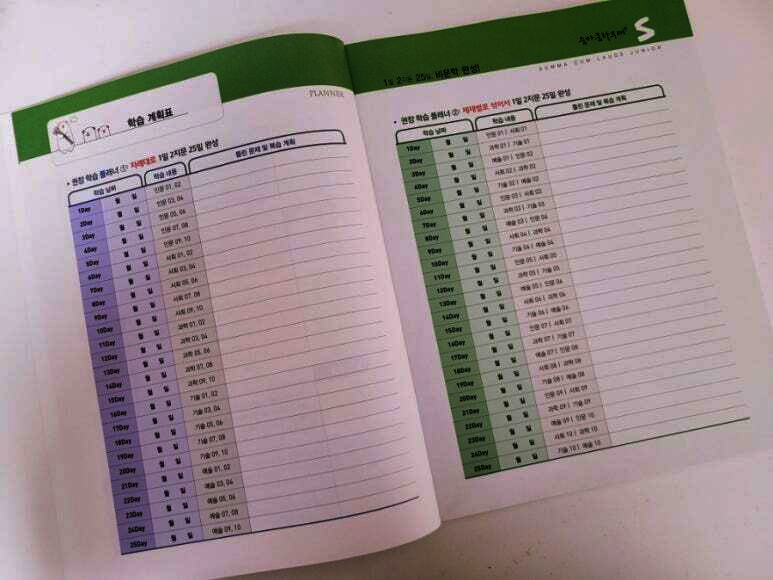 학습 계획표
PLANNER
• 권장 학습 플래너 ① 차례대로 1일 2지문 25일 완성
학습 날짜 학습 내용 틀린 문제 및 복습 계획
1Day 월 일 인문 01, 02
2Day 월 일 인문 03, 04
3Day 월 일 인문 05, 06
4Day 월 일 인문 07, 08
5Day 월 일 인문 09, 10
6Day 월 일 사회 01, 02
7Day 월 일 사회 03, 04
8Day 월 일 사회 05, 06
9Day 월 일 사회 07, 08
10Day 월 일 사회 09, 10
11Day 월 일 과학 01, 02
12Day 월 일 과학 03, 04
13Day 월 일 과학 05, 06
14Day 월 일 과학 07, 08
15Day 월 일 과학 09, 10
16Day 월 일 기술 01, 02
17Day 월 일 기술 03, 04
18Day 월 일 기술 05, 06
19Day 월 일 기술 07, 08
20Day 월 일 기술 09, 10
21Day 월 일 예술 01, 02
22Day 월 일 예술 03, 04
23Day 월 일 예술 05, 06
24Day 월 일 예술 07, 08
25Day 월 일 예술 09, 10
1일 2지문 25일, 비문학 완성!
숨마쿰라우데 S
SUMMA CUM LAUDE JUNIOR
• 권장 학습 플래너 ② 제재별로 섞어서 1일 2지문 25일 완성
학습 날짜 학습 내용 틀린 문제 및 복습 계획
1Day 월 일 인문 01 | 사회 01
2Day 월 일 과학 01 | 기술 01
3Day 월 일 예술 01 | 인문 02
4Day 월 일 사회 02 | 과학 02
5Day 월 일 기술 02 | 예술 02
6Day 월 일 인문 03 | 사회 03
7Day 월 일 과학 03 | 기술 03
8Day 월 일 예술 03 | 인문 04
9Day 월 일 사회 04 | 과학 04
10Day 월 일 기술 04 | 예술 04
11Day 월 일 인문 05 | 사회 05
12Day 월 일 과학 05 | 기술 05
13Day 월 일 예술 05 | 인문 06
14Day 월 일 사회 06 | 과학 06
15Day 월 일 기술 06 | 예술 06
16Day 월 일 인문 07 | 사회 07
17Day 월 일 과학 07 | 기술 07
18Day 월 일 예술 07 | 인문 08
19Day 월 일 사회 08 | 과학 08
20Day 월 일 기술 08 | 예술 08
21Day 월 일 인문 09 | 사회 09
22Day 월 일 과학 09 | 기술 09
23Day 월 일 예술 09 | 인문 10
24Day 월 일 사회 10 | 과학 10
25Day 월 일 기술 10 | 예술 10